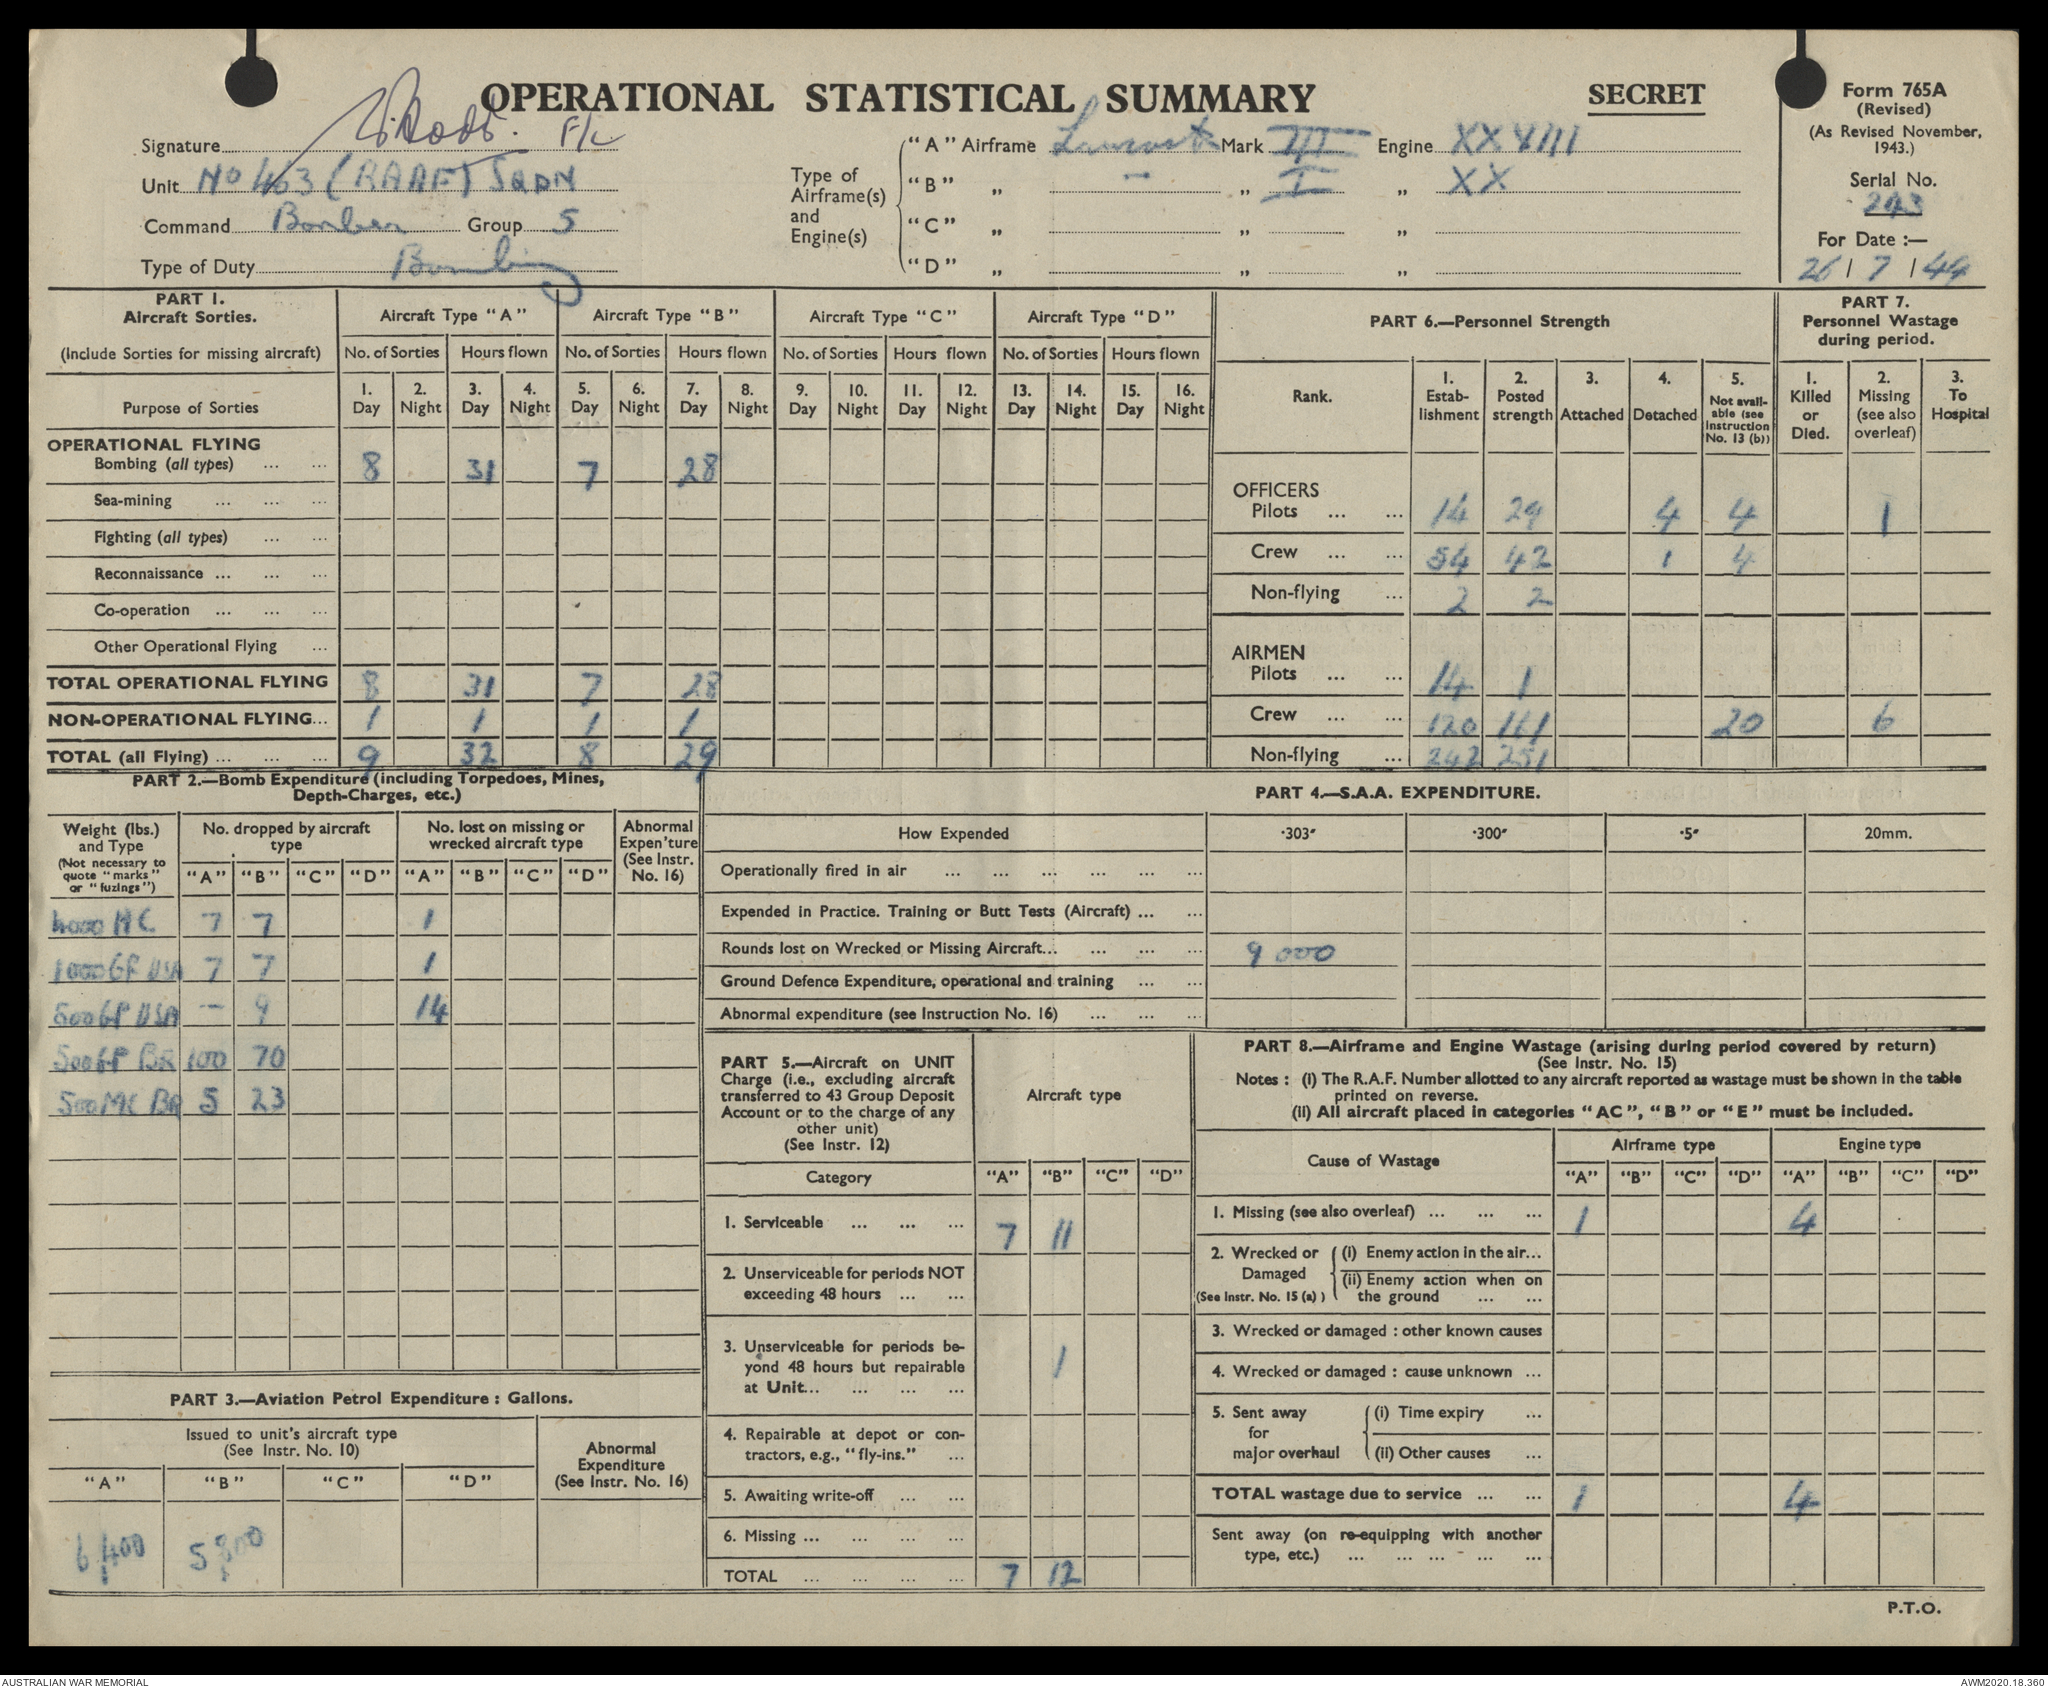 OPERATIONAL STATISTICAL SUMMARY
SECRET
Form 765A
(Revised)
(As Revised November,
1943.)
Serial No.
243
For Date :—
26 / 7 / 44
Signature F/L
Unit No 463 (RAAF) SQDN
Command Bomber Group 5
Type of Duty Bombing
Type of
Airframe(s)
and
Engine(s)
"A" Airframe Lancaster Mark III Engine XXVIII
"B" „ — „ I „ XX
"C" „ „ „
"D" „ „ „
PART 1.
Aircraft Sorties.
(Include Sorties for missing aircraft)
Purpose of Sorties
Aircraft Type "A" Aircraft Type "B" Aircraft Type "C" Aircraft Type "D"
No. of Sorties Hours flown No. of Sorties Hours flown No. of Sorties Hours flown No. of Sorties Hours flown
1. 2. 3. 4. 5. 6. 7. 8. 9. 10. 11. 12. 13. 14. 15. 16.
Day Night Day Night Day Night Day Night Day Night Day Night Day Night Day Night
OPERATIONAL FLYING
Bombing (all types) ... ... 8 31 7 28
Sea-mining ... ... ...
Fighting (all types) ... ...
Reconnaissance ... ... ...
Co-operation ... ... ...
Other Operational Flying ...
TOTAL OPERATIONAL FLYING 8 31 7 28
NON-OPERATIONAL FLYING... 1 1 1 1
TOTAL (all Flying) ... ... ... 9 32 8 29
PART 6.—Personnel Strength
Rank.
1. Estab-lishment
2. Posted strength
3. Attached
4. Detached
5. Not avail-able (see Instruction No. 13 (b))
PART 7.
Personnel Wastage
during period.
1. Killed or Died.
2. Missing (see also overleaf)
3. To Hospital
OFFICERS
Pilots ... ... 14 29 4 4 1
Crew ... ... 54 42 1 4
Non-flying ... 2 2
AIRMEN
Pilots ... ... 14 1
Crew ... ... 120 161 20 6
Non-flying ... 242 251
PART 2.—Bomb Expenditure (including Torpedoes, Mines,
Depth-Charges, etc.)
Weight (lbs.)
and Type
(Not necessary to
quote "marks"
or "fuzings")
No. dropped by aircraft
type
No. lost on missing or
wrecked aircraft type
Abnormal
Expen'ture
(See Instr.
No. 16)
"A" "B" "C" "D" "A" "B" "C" "D"
4000 HC 7 7 1
1000 GP USA 7 7 1
500 GP USA — 9 14
500 GP BR 100 70
500 MC BR 5 23
PART 3.—Aviation Petrol Expenditure : Gallons.
Issued to unit's aircraft type
(See Instr. No. 10)
Abnormal
Expenditure
(See Instr. No. 16)
"A" "B" "C" "D"
6,400 5,800
PART 4.—S.A.A. EXPENDITURE.
How Expended ·303" ·300" ·5" 20mm.
Operationally fired in air ... ... ... ... ... ...
Expended in Practice. Training or Butt Tests (Aircraft) ... ...
Rounds lost on Wrecked or Missing Aircraft... ... ... ... 9 000
Ground Defence Expenditure, operational and training ... ...
Abnormal expenditure (see Instruction No. 16) ... ... ...
PART 5.—Aircraft on UNIT
Charge (i.e., excluding aircraft
transferred to 43 Group Deposit
Account or to the charge of any
other unit)
(See Instr. 12)
Aircraft type
Category "A" "B" "C" "D"
1. Serviceable ... ... ... 7 11
2. Unserviceable for periods NOT
exceeding 48 hours ... ...
3. Unserviceable for periods be-
yond 48 hours but repairable
at Unit... ... ... ... 1
4. Repairable at depot or con-
tractors, e.g., "fly-ins." ...
5. Awaiting write-off ... ...
6. Missing ... ... ... ...
TOTAL ... ... ... ... 7 12
PART 8.—Airframe and Engine Wastage (arising during period covered by return)
(See Instr. No. 15)
Notes : (i) The R.A.F. Number allotted to any aircraft reported as wastage must be shown in the table
printed on reverse.
(ii) All aircraft placed in categories "AC", "B" or "E" must be included.
Cause of Wastage Airframe type Engine type
"A" "B" "C" "D" "A" "B" "C" "D"
1. Missing (see also overleaf) ... ... ... 1 4
2. Wrecked or Damaged (See Instr. No. 15 (a) )
(i) Enemy action in the air...
(ii) Enemy action when on
the ground ... ...
3. Wrecked or damaged : other known causes
4. Wrecked or damaged : cause unknown ...
5. Sent away for major overhaul
(i) Time expiry ...
(ii) Other causes ...
TOTAL wastage due to service ... ... 1 4
Sent away (on re-equipping with another
type, etc.) ... ... ... ... ...
P.T.O.
AUSTRALIAN WAR MEMORIAL
AWM2020.18.360